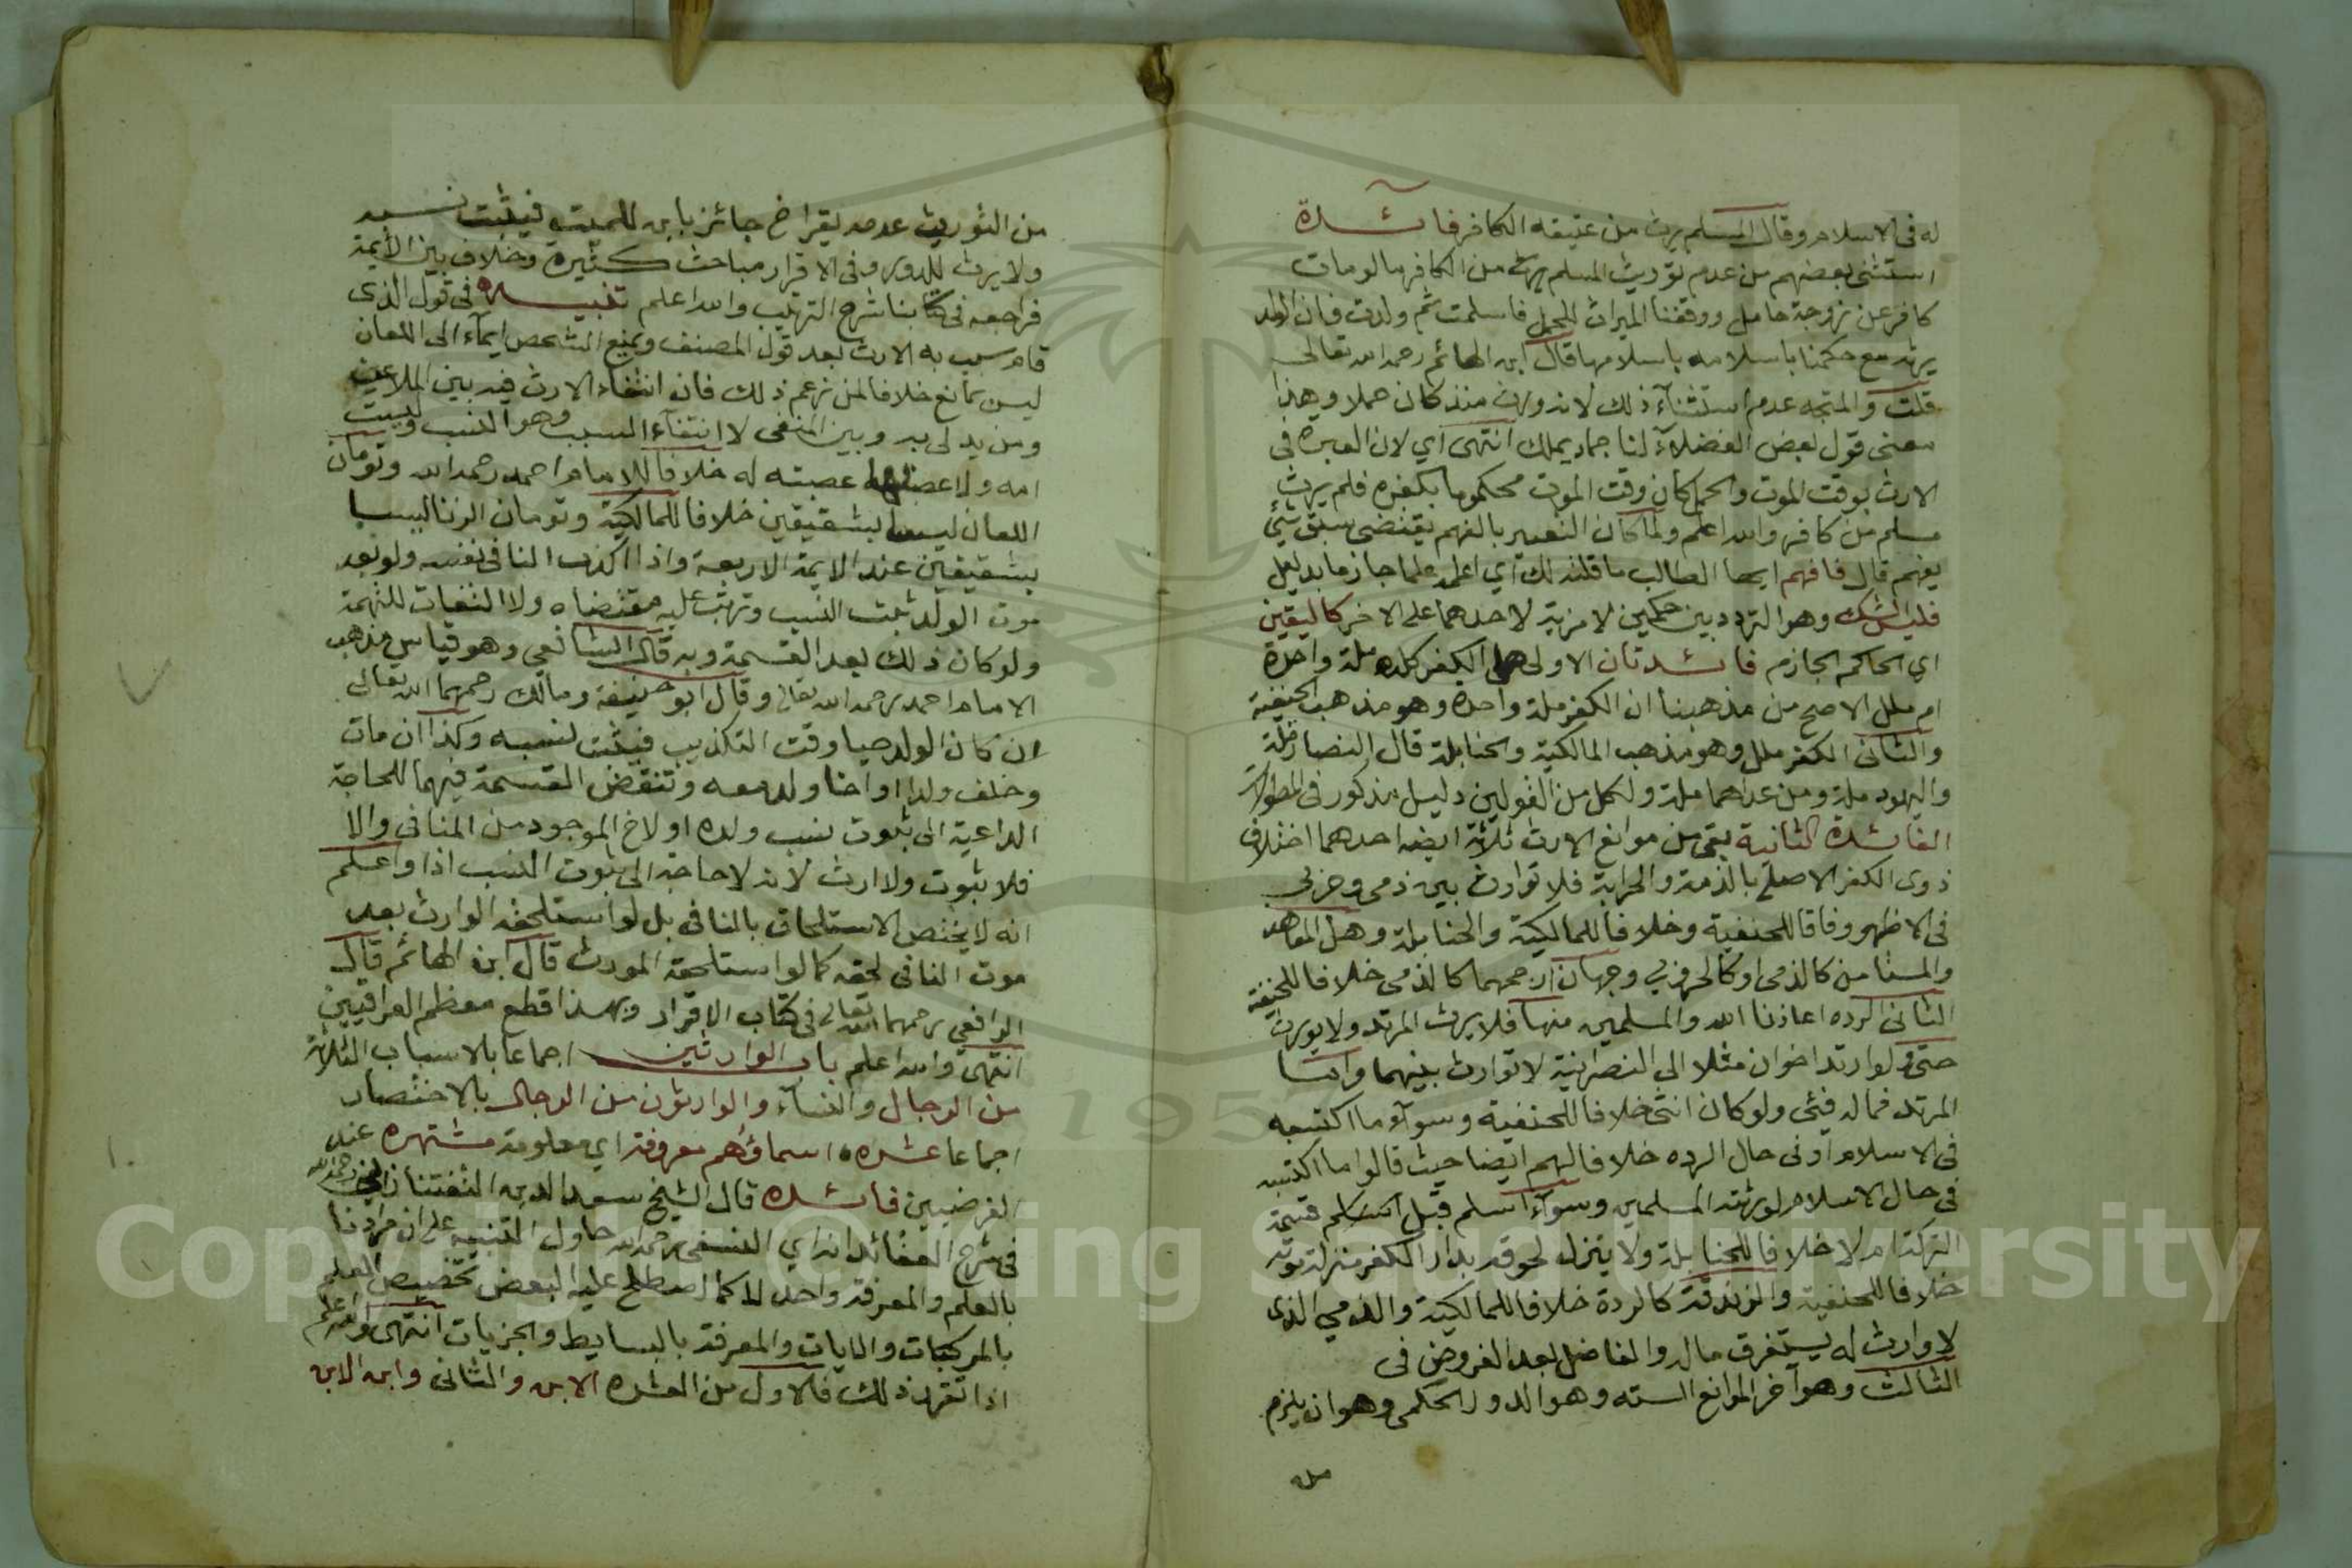 له في الاسلام وقال المسلم يرث من عتيقه الكافر فائدة
استثنى بعضهم من عدم توريث المسلم يرث من الكافر ما لو مات
كافر عن زوجة حامل ووقفنا الميراث للحمل فاسلمت ثم ولدت فان الولد
يرثه مع حكمنا باسلامه باسلامها قال ابن الهائم رحمه الله تعالى
قلت والمتجه عدم استثناء ذلك لانه ورث منذ كان حملا وهذا
معنى قول بعض الفضلاء لنا جماد يملك انتهى اي لان العبرة في
الارث بوقت الموت والحمل كان وقت الموت محكوما بكفره فلم يرث
مسلم من كافر والله اعلم ولما كان التعبير بالفهم يقتضي سبق شيء
يفهم قال فافهم ايها الطالب ما قلته لك اي اعلمه علما جازما بدليل
فليس الشك وهو التردد بين حكمين لا مزية لاحدهما على الاخر كاليقين
اي الحاكم الجازم فائدتان الاولى هل الكفر كله ملة واحدة
ام ملل الاصح من مذهبنا ان الكفر ملة واحدة وهو مذهب الحنفية
والثاني الكفر ملل وهو مذهب المالكية والحنابلة قال النصارى ملة
واليهود ملة ومن عداهما ملة ولكل من القولين دليل مذكور في المطولات
الفائدة الثانية بقي من موانع الارث ثلاثة ايضا احدهما اختلاف
ذوي الكفر الاصلي بالذمة والحرابة فلا توارث بين ذمي وحربي
في الاظهر وفاقا للحنفية وخلافا للمالكية والحنابلة وهل المعاهد
والمستامن كالذمي او كالحربي وجهان ارجحهما كالذمي خلافا للحنفية
الثاني الردة اعاذنا الله والمسلمين منها فلا يرث المرتد ولا يورث
حتى لو ارتد اخوان مثلا الى النصرانية لا توارث بينهما واما
المرتد فماله فيئ ولو كان انثى خلافا للحنفية وسواء ما اكتسبه
في الاسلام او في حال الرده خلافا لهم ايضا حيث قالوا ما اكتسبه
في حال الاسلام لورثته المسلمين وسواء اسلم قبل قسمة
التركة ام لا خلافا للحنابلة ولا ينزل لحوقه بدار الكفر منزلة موته
خلافا للحنفية والزندقة كالردة خلافا للمالكية والذمي الذي
لا وارث له يستغرق ماله والفاضل بعد الفروض في
الثالث وهو آخر الموانع السته وهو الدور الحكمي وهو ان يلزم
من
من التوريث عدمه يقر اخ جائز بابن للميت فيثبت نسبه
ولا يرث للدور وفي الاقرار مباحث كثيرة وخلاف بين الأيمة
فراجعه في كتابنا شرح الترتيب والله اعلم تنبيه في قول الذي
قام سبب به الارث بعد قول المصنف ويمنع الشخص ايماء الى اللعان
ليس بمانع خلافا لمن زعم ذلك فان انتفاء الارث فيه بين الملاعن
ومن يدلي به وبين المنفي لا انتفاء السبب وهو النسب وليست
امه ولا عصبتها عصبته له خلافا للامام احمد رحمه الله وتومان
اللعان ليسا بشقيقين خلافا للمالكية وتومان الزنا ليسا
بشقيقين عند الايمة الاربعة واذا اكذب النافي نفسه ولو بعد
موت الولد ثبت النسب وترتب عليه مقتضاه ولا التفات للتهمة
ولو كان ذلك بعد القسمة وبه قال الشافعي وهو قياس مذهب
الامام احمد رحمه الله تعالى وقال ابو حنيفة ومالك رحمهما الله تعالى
ان كان الولد حيا وقت التكذيب فيثبت نسبه وكذا ان مات
وخلف ولدا او اخا ولد معه وتنقض القسمة فيهما للحاجة
الداعية الى ثبوت نسب ولده او لاخ الموجود من المنافي والا
فلا ثبوت ولا ارث لانه لا حاجة الى ثبوت النسب اذا واعلم
انه لا يختص الاستلحاق بالنافي بل لو استلحقه الوارث بعد
موت النافي لحقه كما لو استلحقه المورث قال ابن الهائم قال
الرافعي رحمهما الله تعالى في كتاب الاقرار وبهذا قطع معظم العراقيين
انتهى والله اعلم باب الوارثين اجماعا بالاسباب الثلاثة
من الرجال والنساء والوارثون من الرجال بالاختصار
اجماعا عشره اسماؤهم معروفة اي معلومة مشتهره عند
الفرضيين فائده قال الشيخ سعد الدين التفتازاني رحمه الله
في شرح العقائد انه اي النسفي رحمه الله حاول التنبيه على ان مرادنا
بالعلم والمعرفة واحد لا كما اصطلح عليه البعض تخصيص العلم
بالمركبات والكليات والمعرفة بالبسايط والجزيات انتهى والله اعلم
اذا تقرر ذلك فالاول من العشره الابن والثاني وابن الابن
Copyright © King Saud University
1957